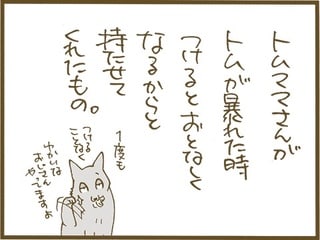 トムママさんが
トムが暴れた時
つけるとおとなしく
なるからと
持たせて
くれたもの。
1度も
つける
ことなく
ゆかいな
おじさん
やってますよ